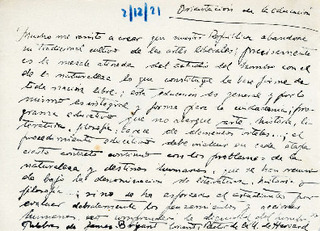 2/12/21
Orientación de la educación
"Mucho me resisto a creer que nuestra República abandone
su tradicional cultivo de las artes liberales; precisamente
es la mezcla atinada del estudio del hombre con el
de la naturaleza lo que constituye la base firme de
toda nación libre; esta educación es general y por lo
mismo es integral y forma para la ciudadanía; pro-
grama educativo que no abarque arte, historia, li-
teratura, filosofía, carece de elementos vitales...; el
procedimiento educativo debe incluir en cada etapa
cierto contacto continuo con los problemas de la
naturaleza y destinos humanos, que se han reunido
bajo la denominación de literatura, historia y
filosofía; si no se ha esforzado el estudiante por
evaluar debidamente los pensamientos y acciones
humanos no comprenderá la
Palabras de James Bryant Conant, Rector de la U. de Harvard